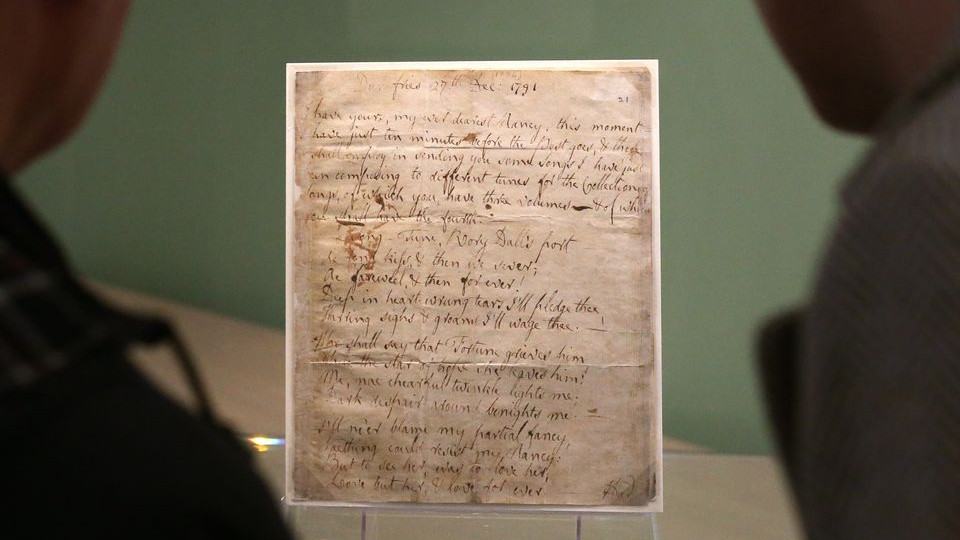 Dumfries 27th Dec: 1791
21
I have yours, my ever dearest Nancy, this moment
have just ten minutes before the Post goes, & these
shall employ in sending you some songs I have just
been composing to different tunes for the Collection
songs, of which you have three volumes — & of which
you shall have the fourth. —
Song — Tune, Rory Dall's port
Ae fond kiss, & then we sever;
Ae fareweel, & then for ever!
Deep in heart-wrung tears I'll pledge thee,
Warring sighs & groans I'll wage thee. —
Who shall say that Fortune grieves him
While the star of hope she leaves him:
Me, nae chearful twinkle lights me;
Dark despair around benights me. —
I'll ne'er blame my partial fancy,
Naething could resist my Nancy:
But to see her, was to love her;
Love but her, & love for ever.